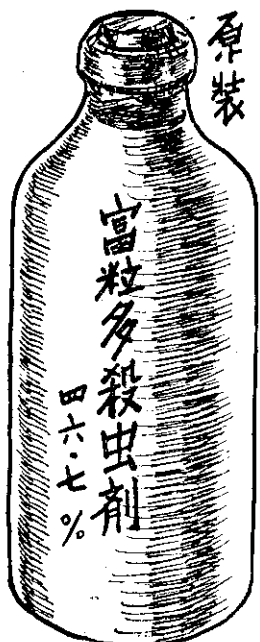 原裝
富粒多殺虫剤
四六·七%